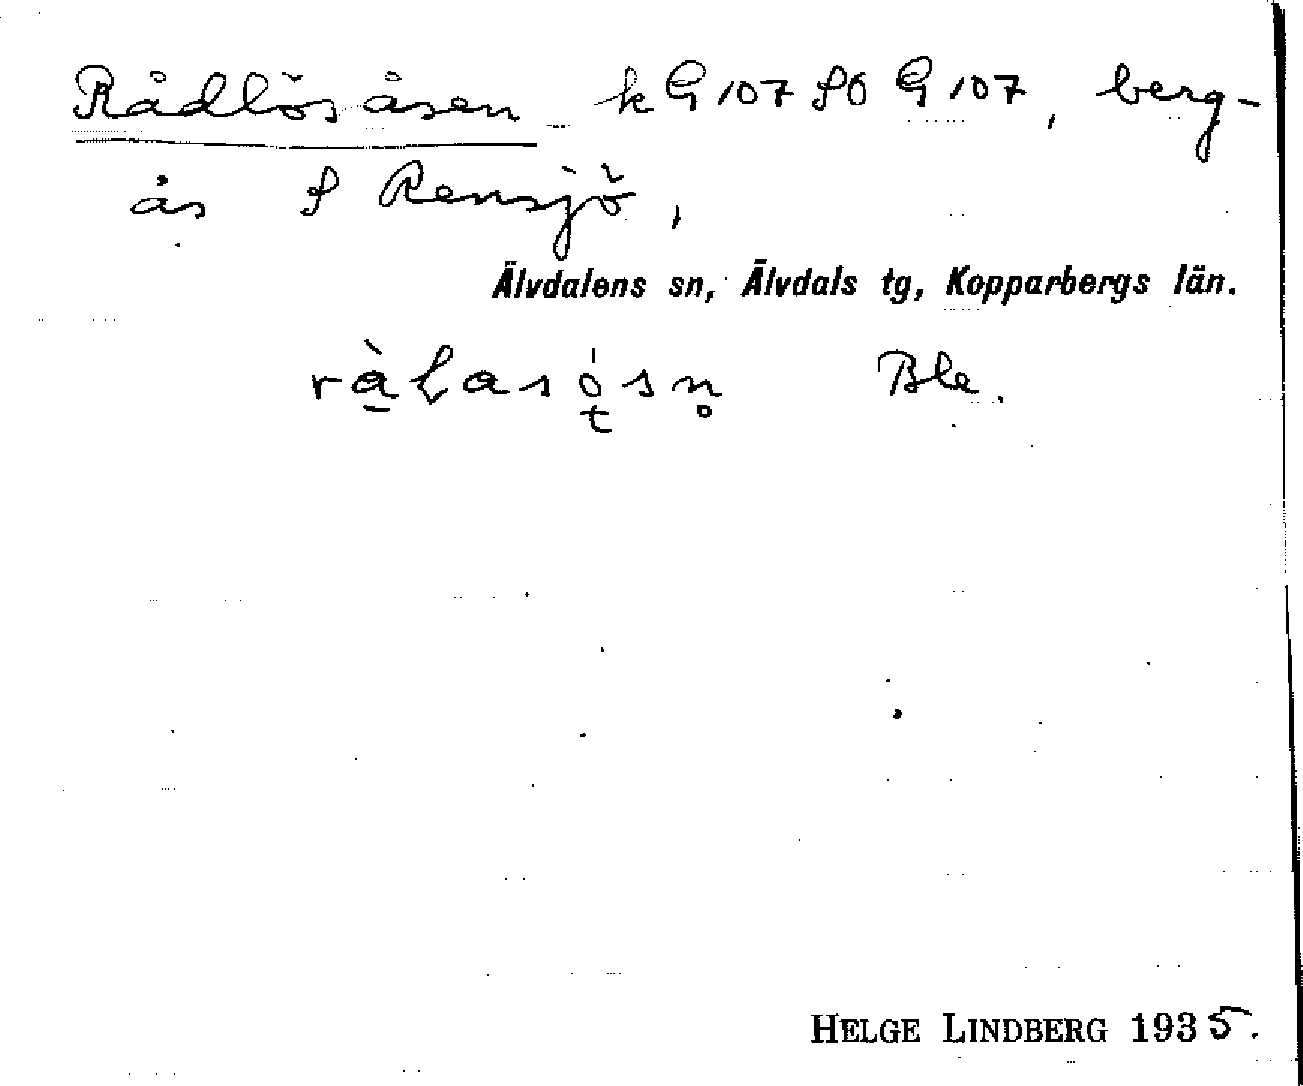 Rådlösåsen k G 107 SO G 107, berg-
ås S Rensjö,
Älvdalens sn, Älvdals tg, Kopparbergs län.
Ble.
HELGE LINDBERG 1935.